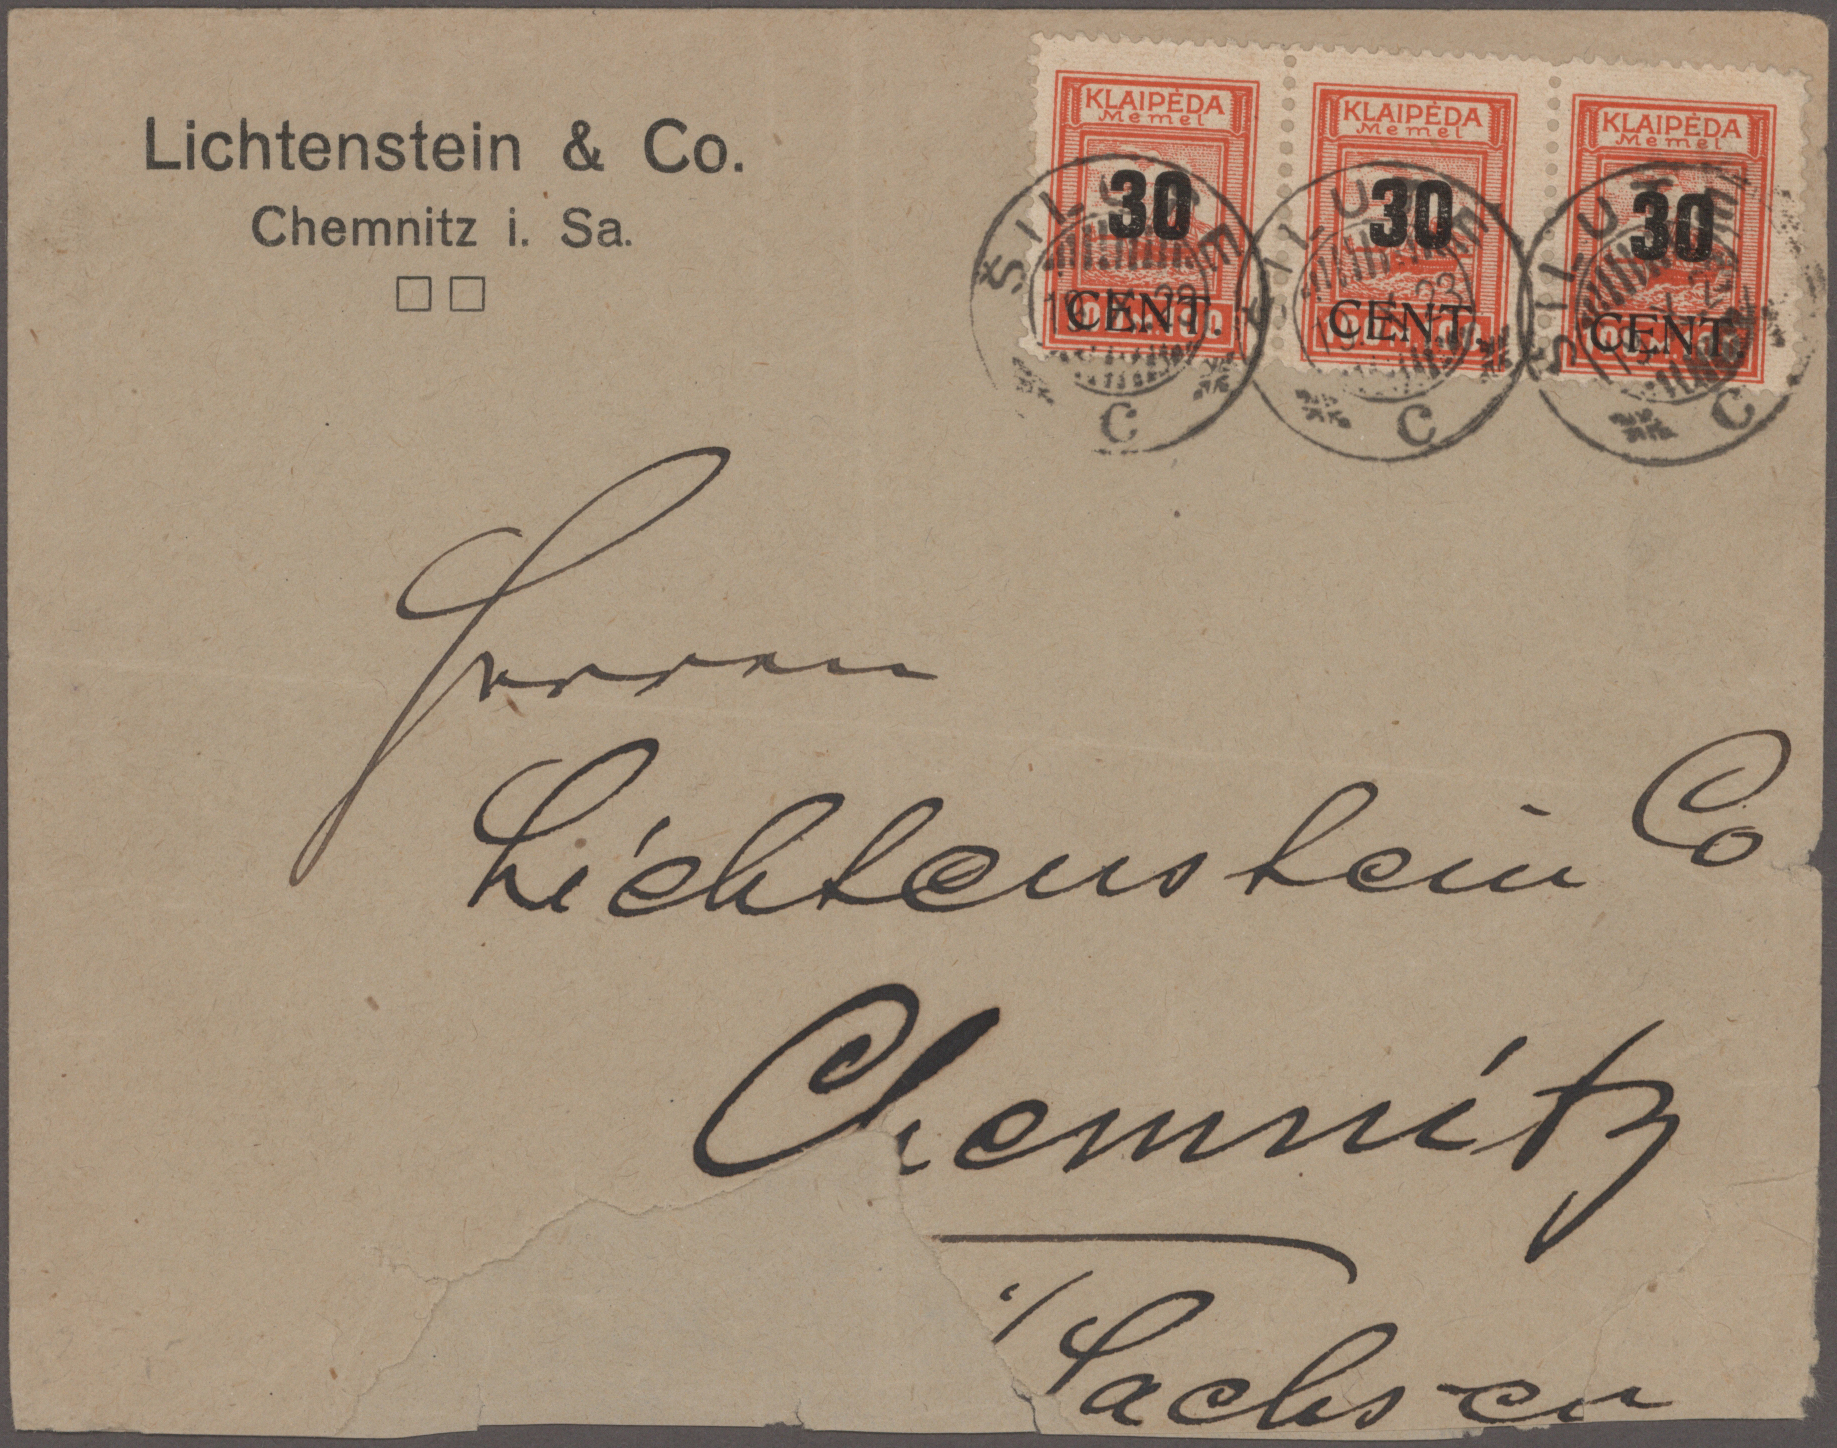 Lichtenstein & Co.
Chemnitz i. Sa.
KLAIPĖDA
Memel
30
CENT.
KLAIPĖDA
Memel
30
CENT.
KLAIPĖDA
Memel
30
CENT.
ŠILUTĖ
C
ŠILUTĖ
C
ŠILUTĖ
C
Herren
Lichtenstein Co
Chemnitz
i/Sachsen